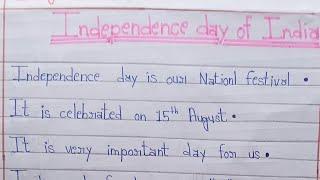 Independence day of India
Independence day is our Nationl festival .
It is celebrated on 15th August .
It is very important day for us .